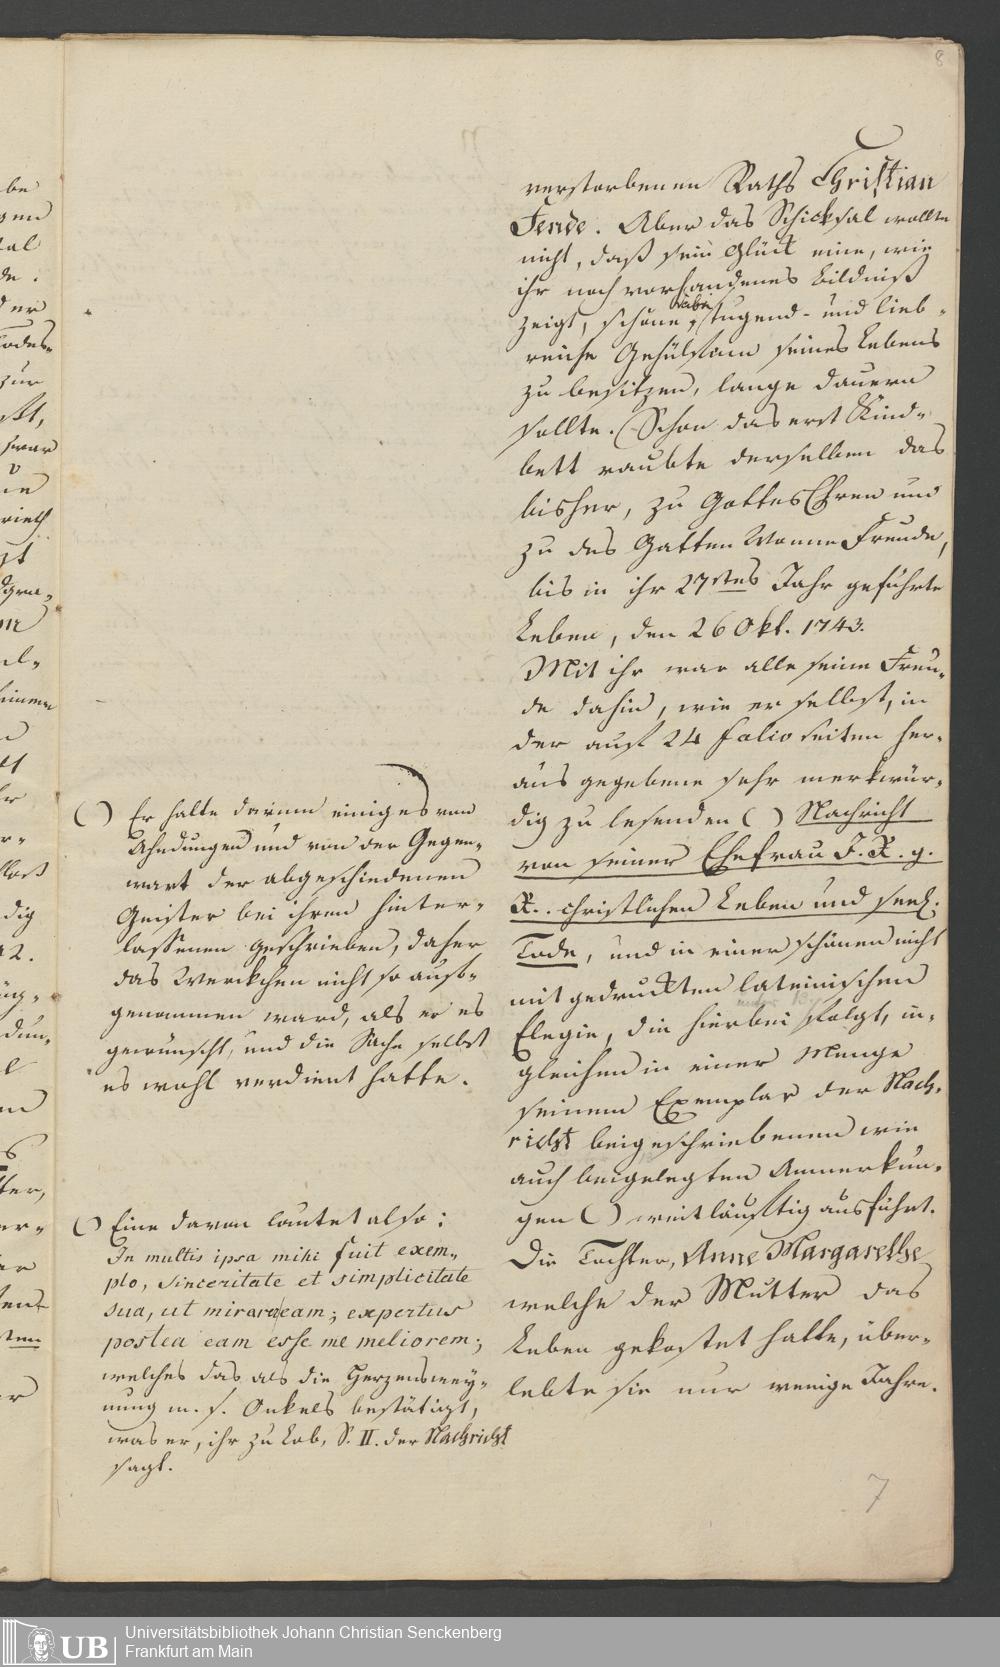 8
verstorbenen Raths Christian
Fende. Aber das Schicksal wollte
nicht, daß sein Glück eine, wie
ihr noch vorhandenes Bildniß
zeigt, schöne, tugend- und lieb-
reiche Gehülfinn seines Lebens
zu besitzen, lange dauern
sollte. (Schon das erst Kind-
bett raubte derselben das
bisher, zu Gottes Ehren und
zu des Gatten Wonne Freude,
bis in ihr 27stes Jahr geführte
Leben, den 26 Okt. 1743.
Mit ihr war alle seine Freu-
de dahin, wie er selbst, in
der auf 24 folio seiten her-
aus gegebene sehr merkwür-
dig zu lesenden ( ) Nachricht
von seiner Ehefrau J. R. g.
R. christlichen Leben und seel.
Tode, und in einer schönen nicht
mit gedruckten lateinischen
Elegie, die hierbei folgt, in-
gleichen in einer Menge
seinem Exemplar der Nach-
richt beigeschriebenen wie
auch beigelegten Anmerkun-
gen ( ) weitläuftig ausführt.
Die Tochter, Anne Margarethe
welche der Mutter das
Leben gekostet hatte, über-
lebte sie nur wenige Jahre.
( ) Er hatte darinn einiges von
Ahndungen und von der Gegen-
wart der abgeschiedenen
Geister bei ihren hinter-
lassenen geschrieben, daher
das Werckchen nicht so auf-
genommen ward, als er es
gewünscht, und die Sache selbst
es wohl verdient hatte.
( ) Eine davon lautet also:
In multis ipsa mihi fuit exem-
plo, sinceritate et simplicitate
sua, ut mirarer eam; expertus
postea eam esse me meliorem;
welches das als die Herzensmey-
nung m. s. Onkels bestätigt,
was er, ihr zu Lob, S. II. der Nachricht
sagt.
7
UB
Universitätsbibliothek Johann Christian Senckenberg
Frankfurt am Main